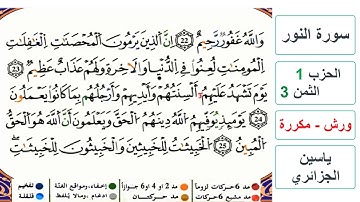 سورة النور
الحزب 1
الثمن 3
ورش - مكررة
ياسين
الجزائري
وَاللَّهُ غَفُورٌ رَّحِيمٌ 22 إِنَّ الَّذِينَ يَرْمُونَ الْمُحْصَنَاتِ الْغَافِلَاتِ
الْمُومِنَاتِ لُعِنُوا فِي الدُّنْيَا وَالْآخِرَةِ وَلَهُمْ عَذَابٌ عَظِيمٌ 23
يَوْمَ تَشْهَدُ عَلَيْهِمْ أَلْسِنَتُهُمْ وَأَيْدِيهِمْ وَأَرْجُلُهُم بِمَا كَانُوا يَعْمَلُونَ
24 يَوْمَئِذٍ يُوَفِّيهِمُ اللَّهُ دِينَهُمُ الْحَقَّ وَيَعْلَمُونَ أَنَّ اللَّهَ هُوَ الْحَقُّ
الْمُبِينُ 25 الْخَبِيثَاتُ لِلْخَبِيثِينَ وَالْخَبِيثُونَ لِلْخَبِيثَاتِ
مد 6 حركات لزوماً مد 2 أو 4 أو 6 جوازاً إخفاء، ومواقع الغنة تفخيم
مد مشبع 6 حركات مد حركتان إدغام، وما لا يلفظ قلقلة